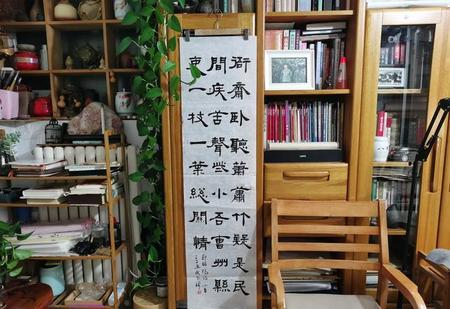 衙齋卧聽蕭蕭竹疑是民
間疾苦聲些小吾曹州縣
吏一枝一葉總關情